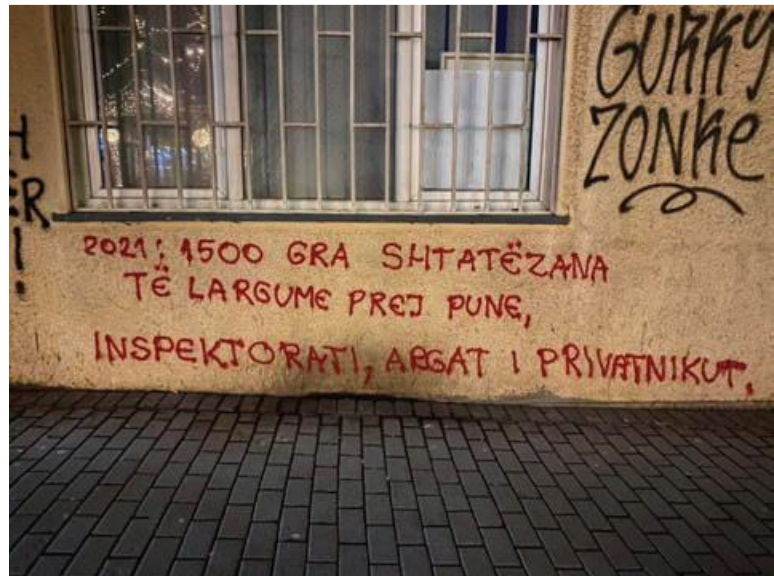 GURKY
ZONKE
H
ER
I!
2021: 1500 GRA SHTATËZANA
TË LARGUME PREJ PUNE,
INSPEKTORATI, ARGAT I PRIVATNIKUT.